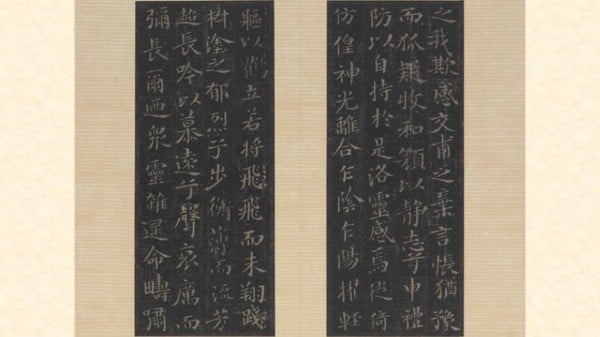 之我欺感交甫之棄言悵猶豫
而狐疑收和顏以静志兮申禮
防以自持於是洛靈感焉徙倚
仿偟神光離合乍陰乍陽擢輕
軀以鶴立若將飛飛而未翔踐
椒塗之郁烈兮步蘅薄而流芳
超長吟以慕遠兮聲哀厲而
彌長爾迺衆靈雜遝命疇嘯